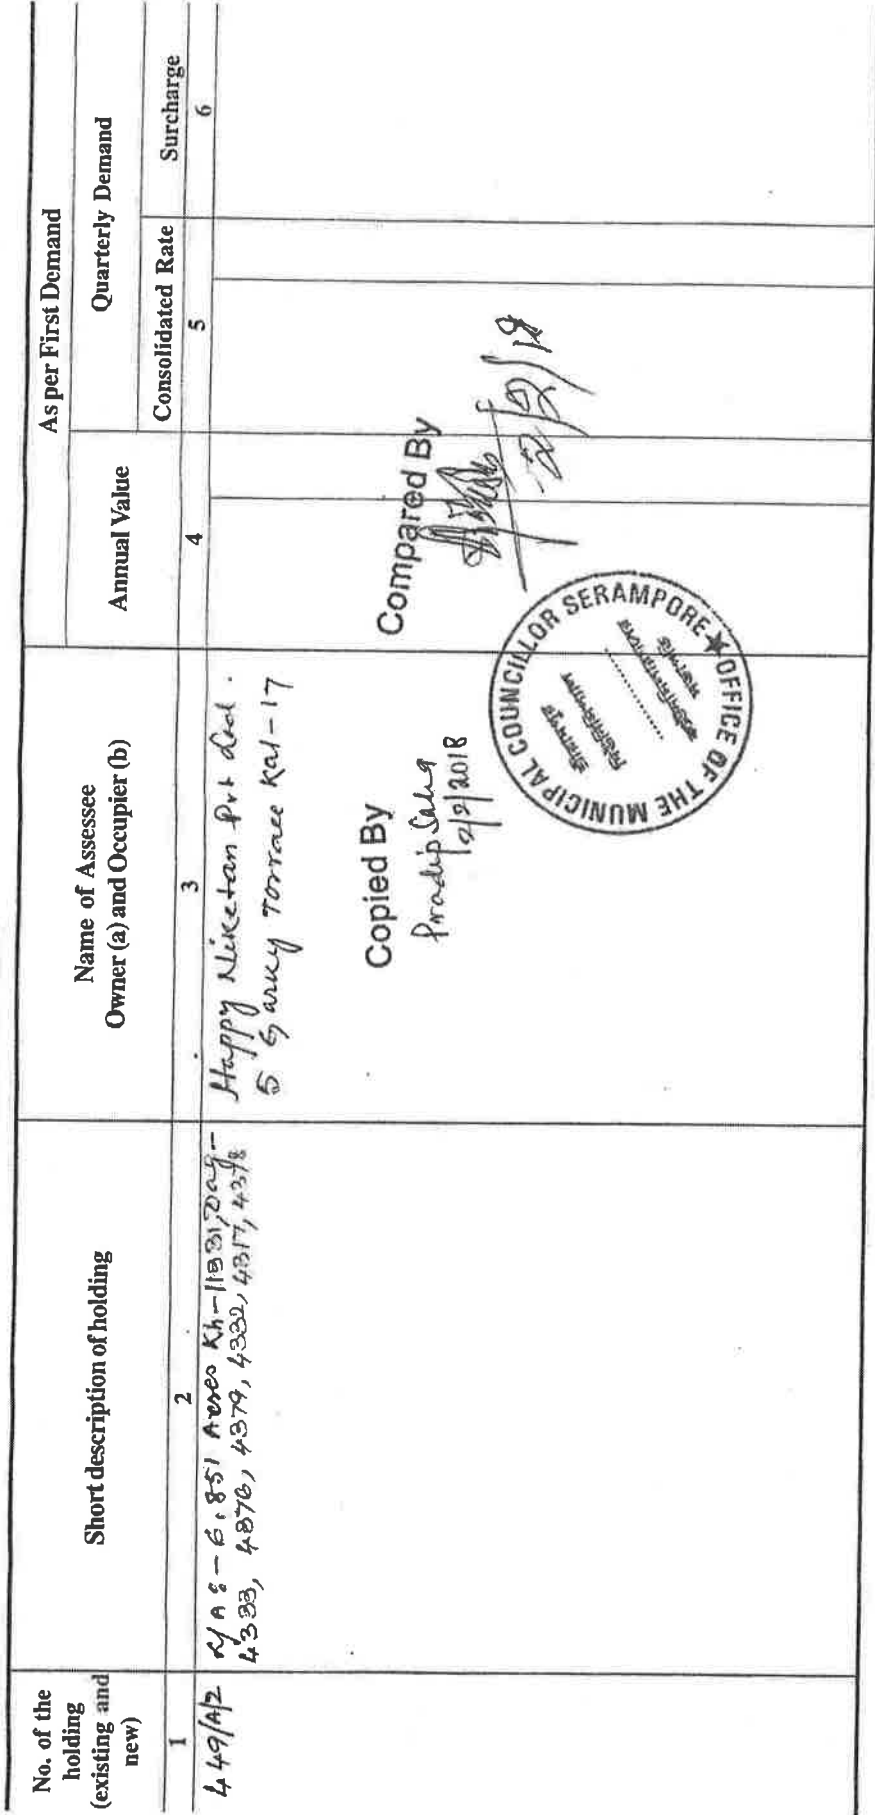 No. of the
holding
(existing and
new)
Short description of holding
Name of Assessee
Owner (a) and Occupier (b)
As per First Demand
Annual Value
Quarterly Demand
Consolidated Rate
Surcharge
1
2
3
4
5
6
449/A/2
6.851 Acres Kh-11331, Dag-
4333, 4376, 4379, 4332, 4317, 4378
Happy Niketan Pvt Ltd.
5 Garcy Torrace Kal-17
Copied By
Pradip Saha
2/2/2018
Compared By
2/2/18
OFFICE OF THE MUNICIPAL COUNCILLOR SERAMPORE